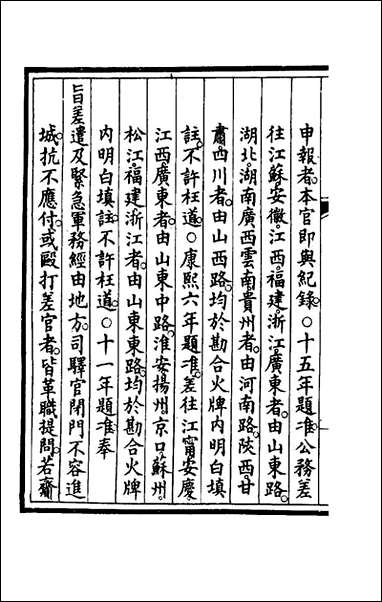 申報者。本官即與紀錄。○十五年題准。公務差
往江蘇。安徽。江西。福建。浙江。廣東者。由山東路。
湖北。湖南。廣西。雲南。貴州者。由河南路。陝西。甘
肅。四川者。由山西路。均於勘合火牌內明白填
註。不許枉道。○康熙六年題准。差往江甯。安慶。
江西。廣東者。由山東中路。淮安。揚州。京口。蘇州。
松江。福建。浙江者。由山東東路。均於勘合火牌
內明白填註。不許枉道。○十一年題准。奉
旨差遣及緊急軍務經由地方。司驛官閉門不容進
城。抗不應付。或毆打差官者。皆革職提問。若齎